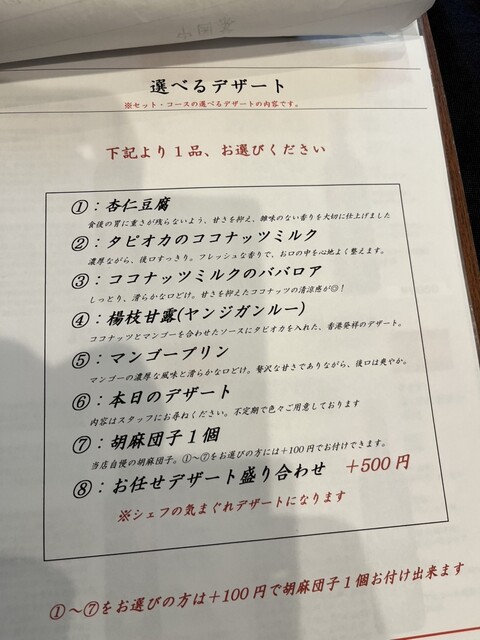 選べるデザート
※セット・コースの選べるデザートの内容です。
下記より１品、お選びください
①：杏仁豆腐
食後の胃に重さが残らないよう、甘さを抑え、雑味のない香りを大切に仕上げました
②：タピオカのココナッツミルク
濃厚ながら、後口すっきり。フレッシュな香りで、お口の中を心地よく整えます。
③：ココナッツミルクのババロア
しっとり、滑らかな口どけ。甘さを抑えたココナッツの清涼感が◎！
④：楊枝甘露(ヤンジガンルー)
ココナッツとマンゴーを合わせたソースにタピオカを入れた、香港発祥のデザート。
⑤：マンゴープリン
マンゴーの濃厚な風味と滑らかな口どけ。贅沢な甘さでありながら、後口は爽やか。
⑥：本日のデザート
内容はスタッフにお尋ねください。不定期で色々ご用意しております
⑦：胡麻団子１個
当店自慢の胡麻団子。①～⑦をお選びの方には＋100円でお付けできます。
⑧：お任せデザート盛り合わせ ＋500円
※シェフの気まぐれデザートになります
①～⑦をお選びの方は＋100円で胡麻団子１個お付け出来ます